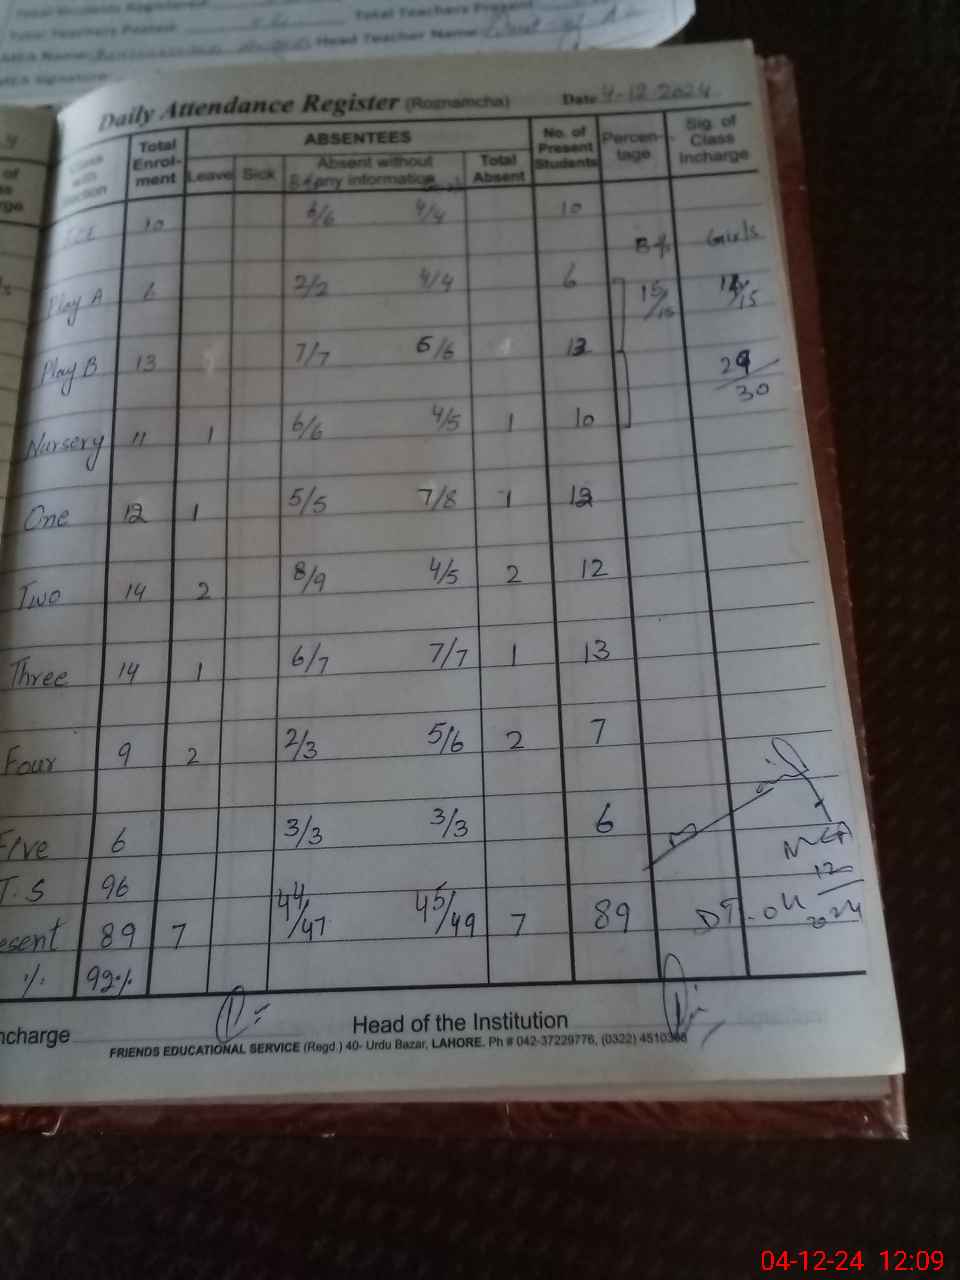 Total Students Registered
Total Teachers Posted Total Teachers Present
Head Teacher Name:
Signature
Daily Attendance Register (Roznamcha) Date 4-12-2024
Class with Section Total Enrol-ment ABSENTEES No. of Present Students Percen-tage Sig. of Class Incharge
Leave Sick Absent without any information Total Absent
10 6/6 4/4 10
Girls
Play A 6 2/2 4/4 6 15/15 /15
Play B 13 7/7 6/6 13 29/30
Nursery 11 1 6/6 4/5 1 10
One 13 1 5/5 7/8 1 12
Two 14 2 8/9 4/5 2 12
Three 14 1 6/7 7/7 1 13
Four 9 2 2/3 5/6 2 7
Five 6 3/3 3/3 6
T.S 96
esent 89 7 44/47 45/49 7 89
MEA
DT. 04 12 2024
% 92%
ncharge Head of the Institution
FRIENDS EDUCATIONAL SERVICE (Regd.) 40- Urdu Bazar, LAHORE. Ph # 042-37229776, (0322) 4510368
04-12-24 12:09